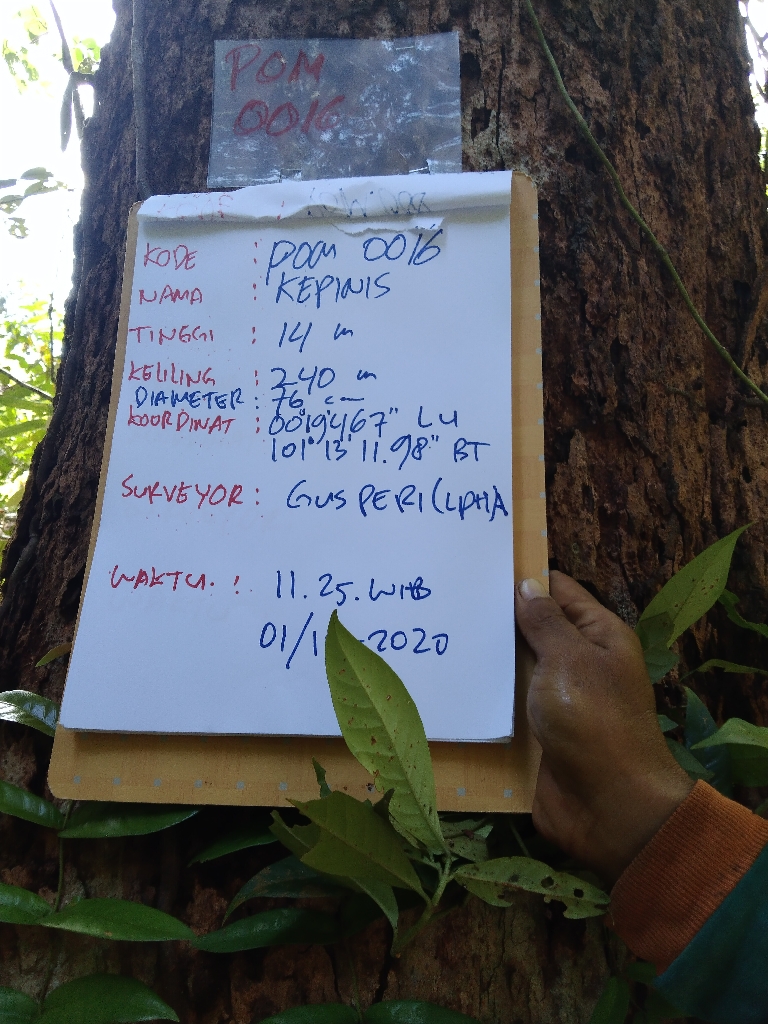 POM
0016
KODE : POM 0016
NAMA : KEPINIS
TINGGI : 14 m
KELILING : 240 m
DIAMETER : 76 cm
KOORDINAT : 00°19'467" LU
101°13'11.98" BT
SURVEYOR : GUSPERI (LPHA
WAKTU : 11.25. WIB
01/1 -2020